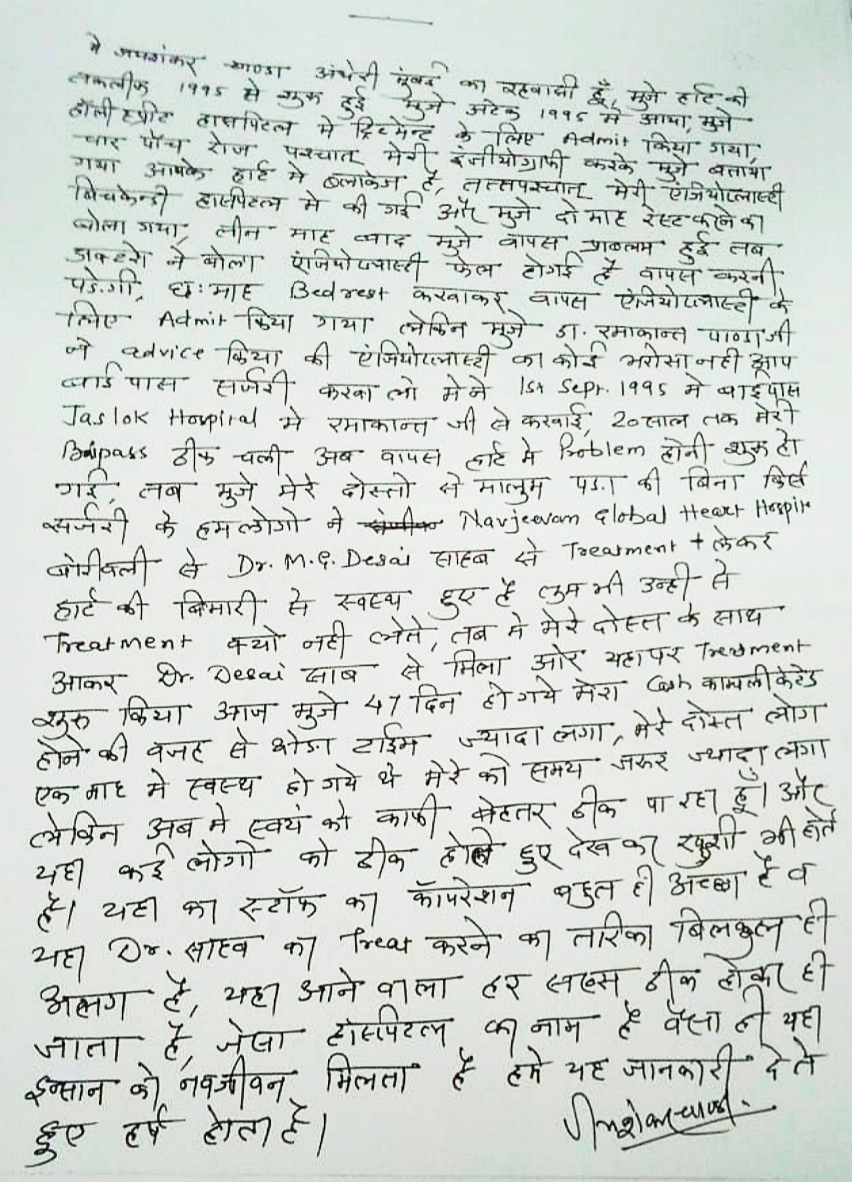 मे जयशंकर पाण्डा अंधेरी मुंबई का रहवासी हूँ, मुजे हार्ट की
तकलीफ 1995 से शुरू हुई मुजे अटेक 1995 मे आया, मुजे
होली स्प्रीट हास्पिटल मे ट्रिटमेन्ट के लिए Admit किया गया,
चार पाँच रोज पश्चात् मेरी इंजीयोग्राफी करके मुजे बताया
गया आपके हार्ट मे ब्लाकेज है, तत्तपश्चात् मेरी एंजियोप्लास्टी
ब्रिचकेन्डी हास्पिटल मे की गई और मुजे दो माह रेस्ट करने का
बोला गया, तीन माह बाद मुजे वापस प्राबलम हुई तब
डाक्टरो ने बोला एंजियोप्लास्टी फेल होगई है वापस करनी
पडे.गी, छ:माह Bedrest करवाकर वापस एंजियोप्लास्टी के
लिए Admit किया गया लेकिन मुजे डा. रमाकान्त पाण्डाजी
ने advice किया की एंजियोप्लास्टी का कोई भरोसा नही आप
बाईपास सर्जरी करवा लो मेने 1st Sept. 1995 मे बाइपास
Jaslok Hospital मे रमाकान्त जी से करवाई, 20 साल तक मेरी
Baipass ठीक चली अब वापस हार्ट मे Problem होनी शुरू हो
गई, तब मुजे मेरे दोस्तो से मालुम पडा की बिना किसी
सर्जरी के हम लोगो ने Navjeevan Global Heart Hospita
बोरीवली से Dr. M.G. Desai साहब से Treatment लेकर
हार्ट की बिमारी से स्वस्थ हुए है तुम भी उन्ही से
Treatment क्यो नही लेते, तब मे मेरे दोस्त के साथ
आकर Dr. Desai साब से मिला ओर यहापर Treatment
शुरु किया आज मुजे 47 दिन हो गये मेरा काम्पलीकेटेड
होने की वजह से थोडा टाईम ज्यादा लगा, मेरे दोस्त लोग
एक माह मे स्वस्थ हो गये थे मेरे को समय जरुर ज्यादा लगा
लेकिन अब मे स्वयं को काफी बेहतर ठीक पा रहा हूँ। और
यहा कई लोगो को ठीक होते हुए देख कर खुशी भी होती
है। यहा का स्टॉफ का कॉपरेशन बहुत ही अच्छा है व
यहा Dr. साहब का Treat करने का तरिका बिलकुल ही
अलग है, यहा आने वाला हर सख्स ठीक होकर ही
जाता है, जेसा हॉस्पिटल का नाम है वैसा ही यहा
इन्सान को नवजीवन मिलता है हमे यह जानकारी देते
हुए हर्ष होता है।